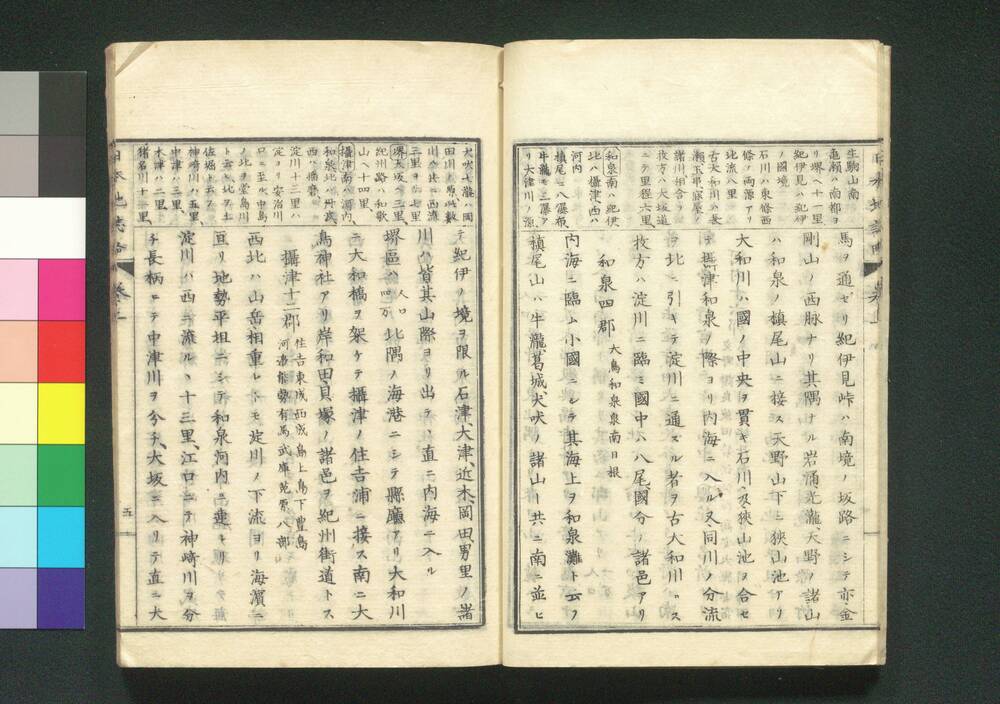 生駒山南
亀瀬ハ南都ヨ
リ堺ヘ十一里
紀伊見ハ紀伊
ノ國境
石川ハ東條西
條ノ両源アリ
北流八里
古大和川ハ長
瀬玉串菱屋
諸川相合ス
枚方ハ大坂道
ニテ里程六里
和泉南ハ紀伊
北ハ攝津西ハ
河内
槙尾ニハ瀑布
牛瀧ニ三瀑ア
リ大津川ノ源
馬ヲ通ゼリ紀伊見峠ハ南境ノ坂路ニシテ亦金
剛山ノ西脉ナリ其隅ナル岩涌光瀧天野ノ諸山
ハ和泉ノ槙尾山ニ接ス天野山下ニ狹山池アリ
大和川ハ國ノ中央ヲ貫キ石川及狹山池ヲ合セ
テ攝津和泉ノ際ヨリ内海ニ入ル又同川ノ分流
ヲ北ニ引キテ淀川ニ通ズル者ヲ古大和川トス
枚方ハ淀川ニ臨ミ國中ハ八尾國分ノ諸邑アリ
和泉四郡 大鳥和泉泉南日根
内海ニ臨ム小國ニシテ其海上ヲ和泉灘ト云フ
槙尾山ハ牛瀧葛城犬吠ノ諸山ト共ニ南ニ並ヒ
犬吠七瀧ハ岡
田川ノ源此數
川ハ共ニ西流
三里ヨリ七里
堺大坂ヘ三里
紀州路ハ和歌
山ヘ十四里
攝津南ハ河内
和泉北ハ丹波
西ハ播磨
淀川十三里ハ
淀ヨリ安治川
口ニ至ル中島
ノ北ヲ堂島川
ト云ヒ北ヲ土
佐堀ト云フ
神崎川ハ五里
中津川ハ三里
木津ハ二里
猪名川十二里
テ紀伊ノ境ヲ限ル石津大津近木岡田男里ノ諸
川ハ皆其山際ヨリ出テヽ直ニ内海ニ入ル
堺區ハ人口四万北隅ノ海港ニシテ縣廳アリ大和川
ニ大和橋ヲ架ケテ攝津ノ住吉浦ニ接ス南ニ大
鳥神社アリ岸和田貝塚ノ諸邑ヲ紀州街道トス
攝津十二郡 住吉東成西成島上島下豊島
河邉能勢有馬武庫菟原八部
西北ハ山岳相重レトモ淀川ノ下流ヨリ海濱ニ
亘リ地勢平坦ニシテ和泉河内ニ連レリ
淀川ハ西ニ流ルヽ十三里江口ニテ神崎川ヲ分
チ長柄ニテ中津川ヲ分チ大坂ニ入リテ直ニ大
五